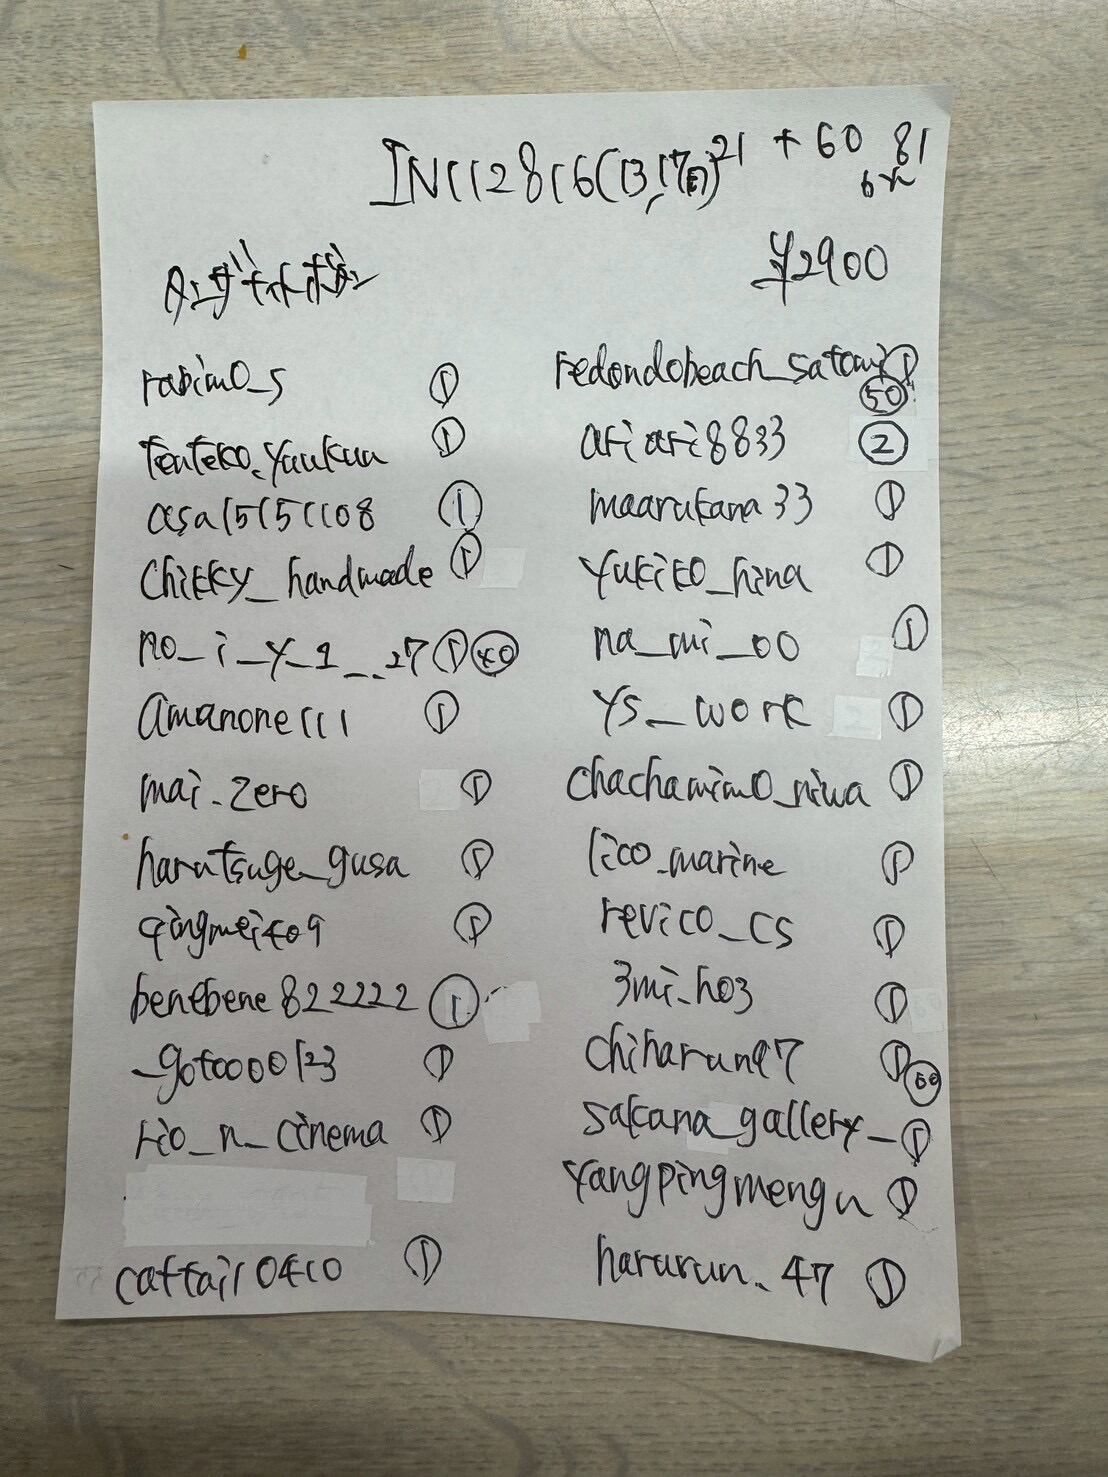 IN112816(13,17日)21 + 60 81
¥2900
rabim0_s ①
tenteko.yuukun ①
asa15151108 ①
chikky_handmade ①
no_i_y_1__.27 ① 40
amanone111 ①
mai.zero ①
harutsuge_gusa ①
qingmei409 ①
benebene822222 ①
_gotoooo123 ①
rio_n_cinema ①
cattail0410 ①
redondobeach_satomi ①
50
ariari8833 ②
maarukana33 ①
yukiko_hina ①
na_mi_00 ①
ys_work ①
chachamim0_niwa ①
lico.marine ①
revico_cs ①
3mi.h03 ①
chiharun97 ① 60
sakana_gallery_ ①
yangpingmengn ①
harurun.47 ①